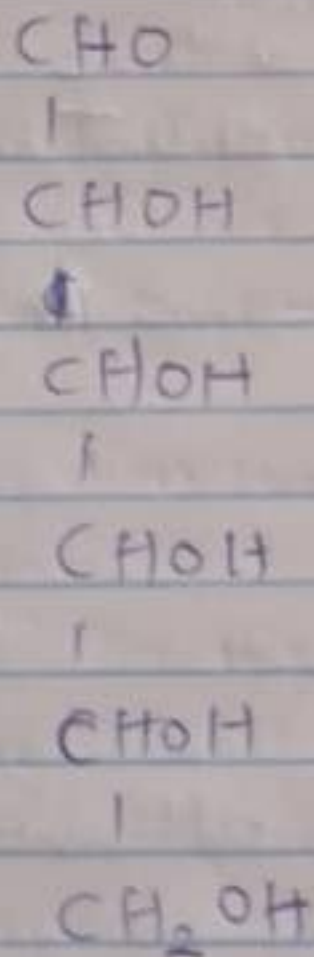 CHO
|
CHOH
|
CHOH
|
CHOH
|
CHOH
|
CH₂OH